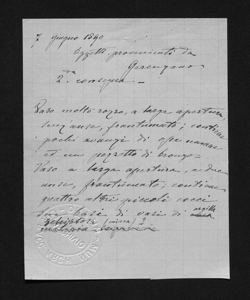 7 giugno 1890
Oggetti provenienti da
2ª consegna. —
Vaso molto rozzo, a larga apertura,
senz'anse, frantumato; contiene
pochi avanzi di ossa umane
ed un pezzetto di bronzo
Vaso a larga apertura, a due
anse, frantumato; contiene
quattro altri piccoli cocci
Due basi di vasi di argilla